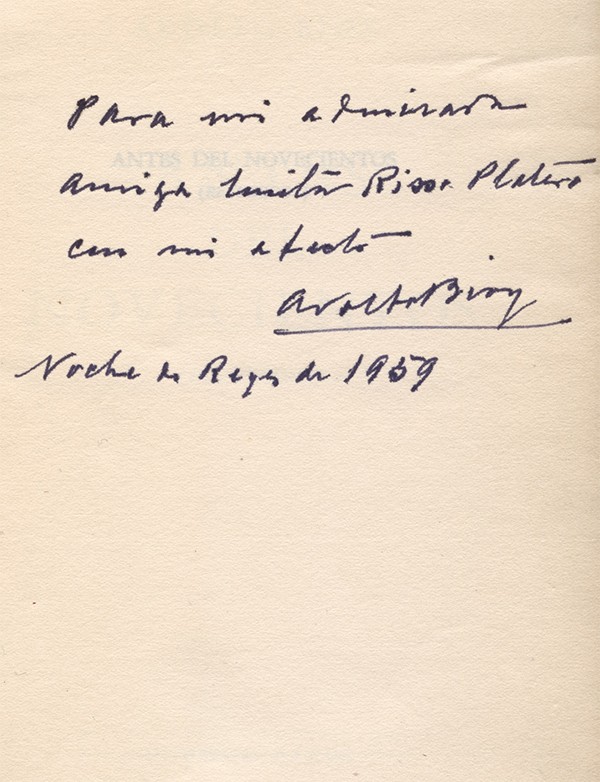 Para mi admirada
ANTES DEL NOVECIENTOS
amiga Emita Risso Platero
con mi afecto
Adolfo Bioy
Noche de Reyes de 1959